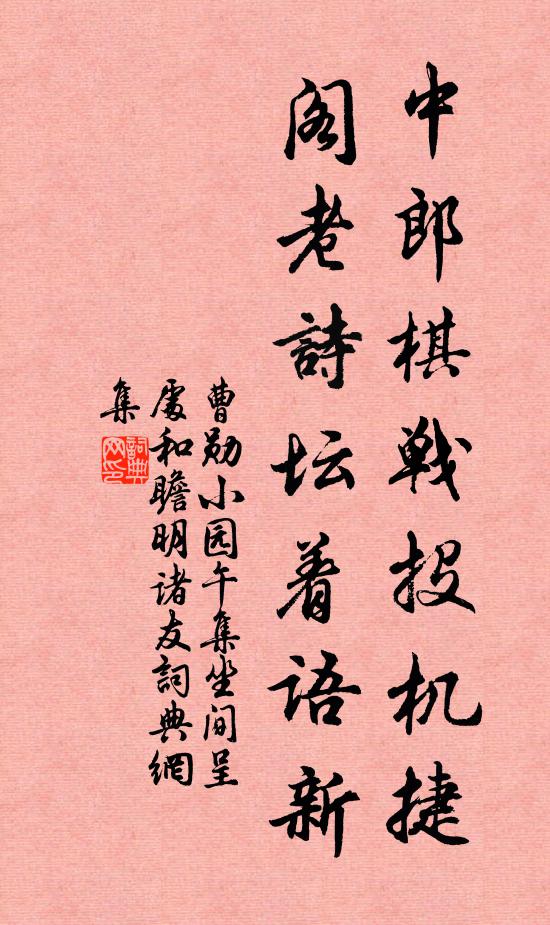 中郎棋戦投机捷
阁老詩坛着语新
曹勋小园午集坐间呈
處和瞻明诸友詞典網
集
詞典網印